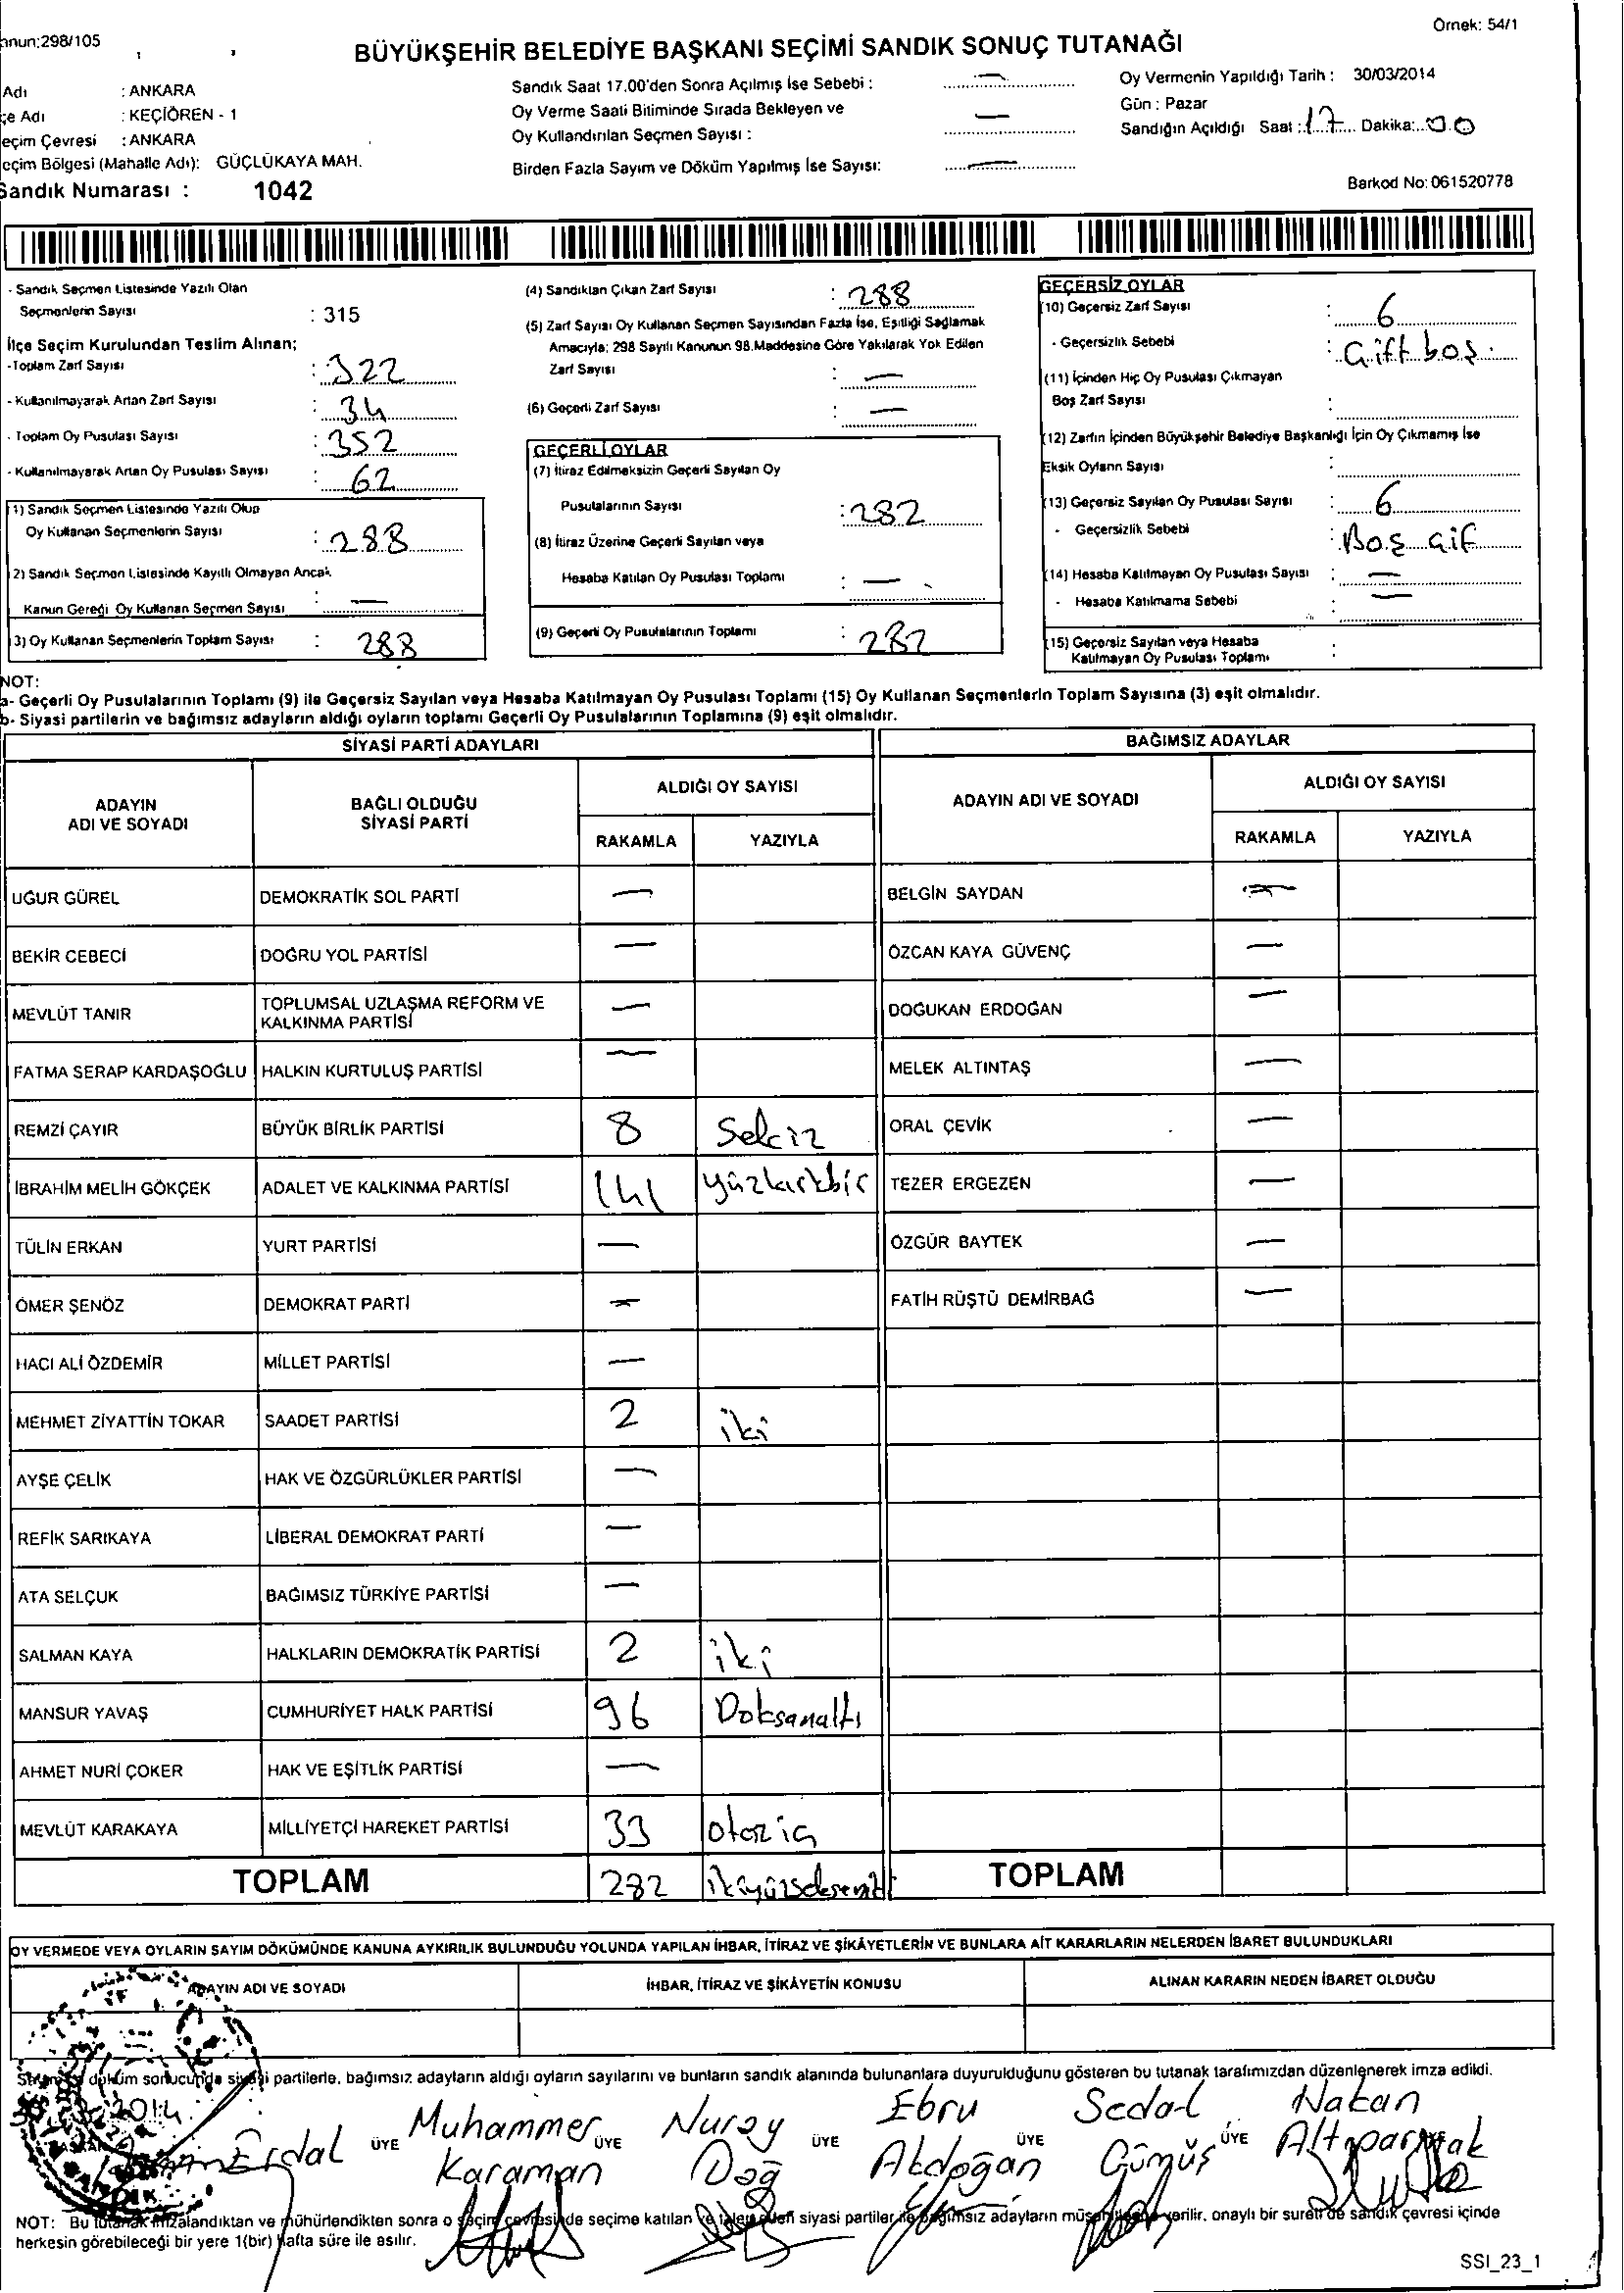 anun:298/105
Örnek: 54/1
BÜYÜKŞEHİR BELEDİYE BAŞKANI SEÇİMİ SANDIK SONUÇ TUTANAĞI
Adı : ANKARA
çe Adı : KEÇİÖREN - 1
eçim Çevresi : ANKARA
eçim Bölgesi (Mahalle Adı): GÜÇLÜKAYA MAH.
Sandık Numarası : 1042
Sandık Saat 17.00'den Sonra Açılmış İse Sebebi : —
Oy Verme Saati Bitiminde Sırada Bekleyen ve
Oy Kullandırılan Seçmen Sayısı : —
Birden Fazla Sayım ve Döküm Yapılmış İse Sayısı: —
Oy Vermenin Yapıldığı Tarih : 30/03/2014
Gün : Pazar
Sandığın Açıldığı Saat : 17 Dakika: 00
Barkod No: 061520778
- Sandık Seçmen Listesinde Yazılı Olan
Seçmenlerin Sayısı : 315
İlçe Seçim Kurulundan Teslim Alınan;
-Toplam Zarf Sayısı : 322
- Kullanılmayarak Artan Zarf Sayısı : 34
- Toplam Oy Pusulası Sayısı : 352
- Kullanılmayarak Artan Oy Pusulası Sayısı : 62
1) Sandık Seçmen Listesinde Yazılı Olup
Oy Kullanan Seçmenlerin Sayısı : 288
2) Sandık Seçmen Listesinde Kayıtlı Olmayan Ancak
Kanun Gereği Oy Kullanan Seçmen Sayısı : —
3) Oy Kullanan Seçmenlerin Toplam Sayısı : 288
(4) Sandıktan Çıkan Zarf Sayısı : 288
(5) Zarf Sayısı Oy Kullanan Seçmen Sayısından Fazla İse, Eşitliği Sağlamak
Amacıyla; 298 Sayılı Kanunun 98.Maddesine Göre Yakılarak Yok Edilen
Zarf Sayısı : —
(6) Geçerli Zarf Sayısı : —
GEÇERLİ OYLAR
(7) İtiraz Edilmeksizin Geçerli Sayılan Oy
Pusulalarının Sayısı : 282
(8) İtiraz Üzerine Geçerli Sayılan veya
Hesaba Katılan Oy Pusulası Toplamı : —
(9) Geçerli Oy Pusulalarının Toplamı : 282
GEÇERSİZ OYLAR
(10) Geçersiz Zarf Sayısı : 6
- Geçersizlik Sebebi : Çift boş.
(11) İçinden Hiç Oy Pusulası Çıkmayan
Boş Zarf Sayısı :
(12) Zarfın İçinden Büyükşehir Belediye Başkanlığı İçin Oy Çıkmamış İse
Eksik Oyların Sayısı :
(13) Geçersiz Sayılan Oy Pusulası Sayısı : 6
- Geçersizlik Sebebi : Boş çif
(14) Hesaba Katılmayan Oy Pusulası Sayısı : —
- Hesaba Katılmama Sebebi : —
(15) Geçersiz Sayılan veya Hesaba
Katılmayan Oy Pusulası Toplamı :
NOT:
a- Geçerli Oy Pusulalarının Toplamı (9) ile Geçersiz Sayılan veya Hesaba Katılmayan Oy Pusulası Toplamı (15) Oy Kullanan Seçmenlerin Toplam Sayısına (3) eşit olmalıdır.
b- Siyasi partilerin ve bağımsız adayların aldığı oyların toplamı Geçerli Oy Pusulalarının Toplamına (9) eşit olmalıdır.
SİYASİ PARTİ ADAYLARI
ADAYIN ADI VE SOYADI
BAĞLI OLDUĞU SİYASİ PARTİ
ALDIĞI OY SAYISI
RAKAMLA YAZIYLA
UĞUR GÜREL DEMOKRATİK SOL PARTİ —
BEKİR CEBECİ DOĞRU YOL PARTİSİ —
MEVLÜT TANIR TOPLUMSAL UZLAŞMA REFORM VE KALKINMA PARTİSİ —
FATMA SERAP KARDAŞOĞLU HALKIN KURTULUŞ PARTİSİ —
REMZİ ÇAYIR BÜYÜK BİRLİK PARTİSİ 8 Sekiz
İBRAHİM MELİH GÖKÇEK ADALET VE KALKINMA PARTİSİ 141 yüzkırkbir
TÜLİN ERKAN YURT PARTİSİ —
ÖMER ŞENÖZ DEMOKRAT PARTİ —
HACI ALİ ÖZDEMİR MİLLET PARTİSİ —
MEHMET ZİYATTİN TOKAR SAADET PARTİSİ 2 iki
AYŞE ÇELİK HAK VE ÖZGÜRLÜKLER PARTİSİ —
REFİK SARIKAYA LİBERAL DEMOKRAT PARTİ —
ATA SELÇUK BAĞIMSIZ TÜRKİYE PARTİSİ —
SALMAN KAYA HALKLARIN DEMOKRATİK PARTİSİ 2 iki
MANSUR YAVAŞ CUMHURİYET HALK PARTİSİ 96 Doksanaltı
AHMET NURİ ÇOKER HAK VE EŞİTLİK PARTİSİ —
MEVLÜT KARAKAYA MİLLİYETÇİ HAREKET PARTİSİ 33 otuz üç
TOPLAM 282 ikiyüzsekseniki
BAĞIMSIZ ADAYLAR
ADAYIN ADI VE SOYADI
ALDIĞI OY SAYISI
RAKAMLA YAZIYLA
BELGİN SAYDAN —
ÖZCAN KAYA GÜVENÇ —
DOĞUKAN ERDOĞAN —
MELEK ALTINTAŞ —
ORAL ÇEVİK —
TEZER ERGEZEN —
ÖZGÜR BAYTEK —
FATİH RÜŞTÜ DEMİRBAĞ —
TOPLAM
OY VERMEDE VEYA OYLARIN SAYIM DÖKÜMÜNDE KANUNA AYKIRILIK BULUNDUĞU YOLUNDA YAPILAN İHBAR, İTİRAZ VE ŞİKÂYETLERİN VE BUNLARA AİT KARARLARIN NELERDEN İBARET BULUNDUKLARI
ADAYIN ADI VE SOYADI
İHBAR, İTİRAZ VE ŞİKÂYETİN KONUSU
ALINAN KARARIN NEDEN İBARET OLDUĞU
döküm sonucunda siyasi partilerle, bağımsız adayların aldığı oyların sayılarını ve bunların sandık alanında bulunanlara duyurulduğunu gösteren bu tutanak tarafımızdan düzenlenerek imza edildi.
2014
Erdal
ÜYE Muhammer Karaman
ÜYE Nuray Dağ
ÜYE Ebru Akdoğan
ÜYE Sedal Gümüş
ÜYE Hakan Altıparmak
NOT: Bu tutanak imzalandıktan ve mühürlendikten sonra o seçim çevresinde seçime katılan ve talep eden siyasi partiler ile bağımsız adayların müşahitlerine verilir. onaylı bir sureti de sandık çevresi içinde
herkesin görebileceği bir yere 1(bir) hafta süre ile asılır.
SSI_23_1